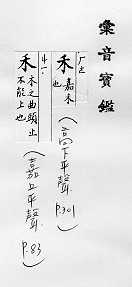 彙音寶鑑
禾 嘉禾也
(高下平聲 P.301)
禾 木之曲頭止不能上也
(嘉上平聲 P.83)